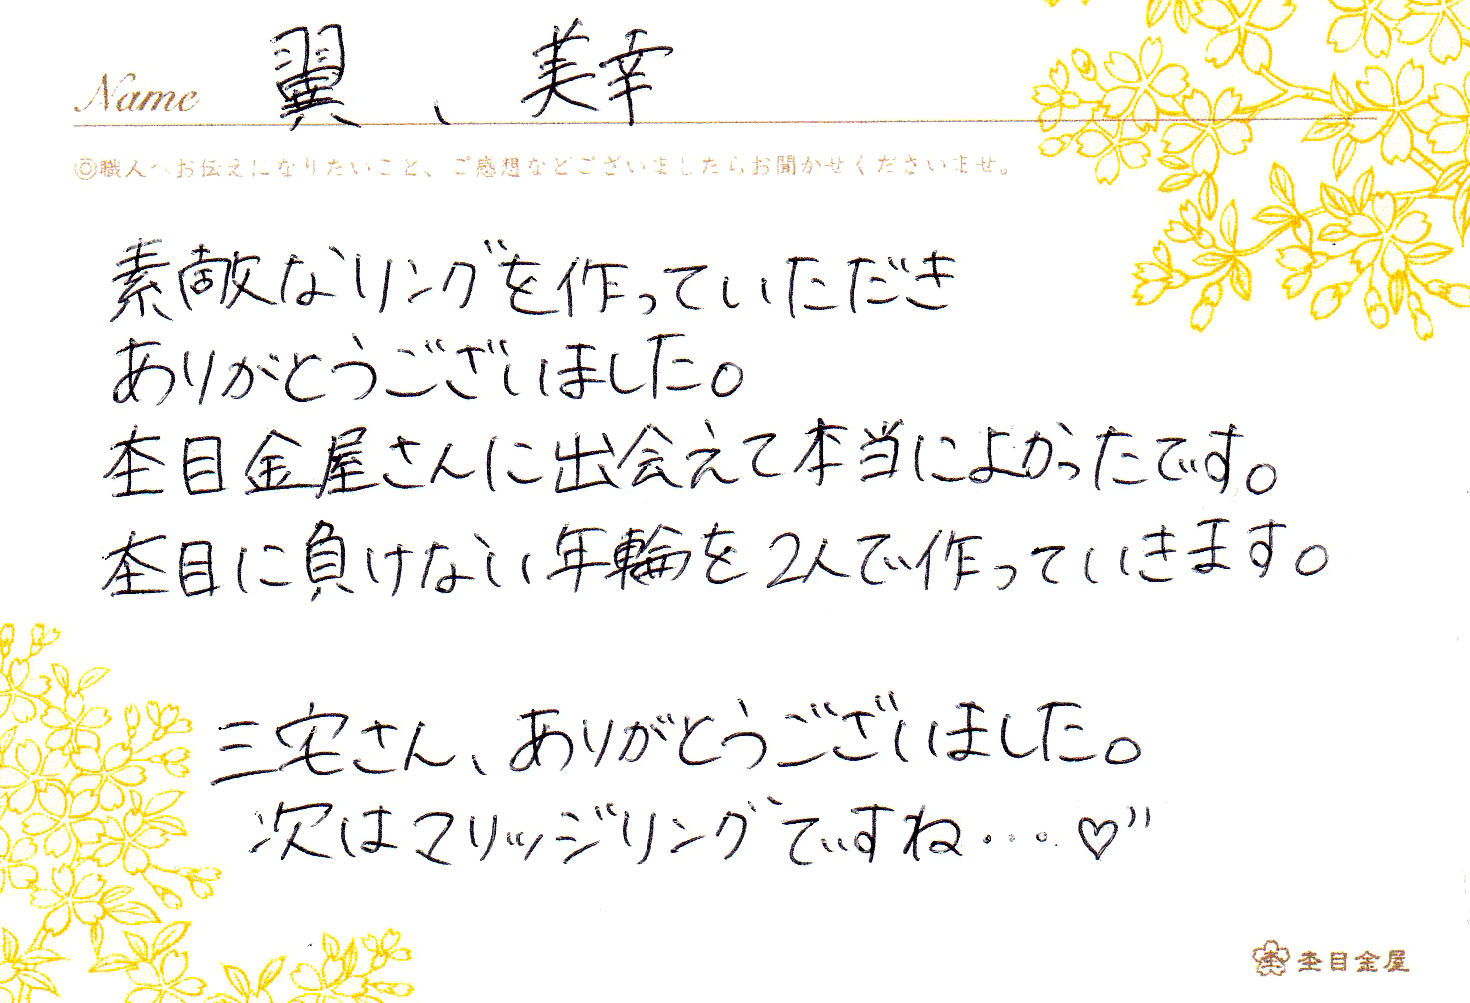 Name 翼、美幸
◎職人へお伝えになりたいこと、ご感想などございましたらお聞かせくださいませ。
素敵なリングを作っていただき
ありがとうございました。
杢目金屋さんに出会えて本当によかったです。
杢目に負けない年輪を2人で作っていきます。
三宅さん、ありがとうございました。
次はマリッジリングですね・・・♡"
杢目金屋